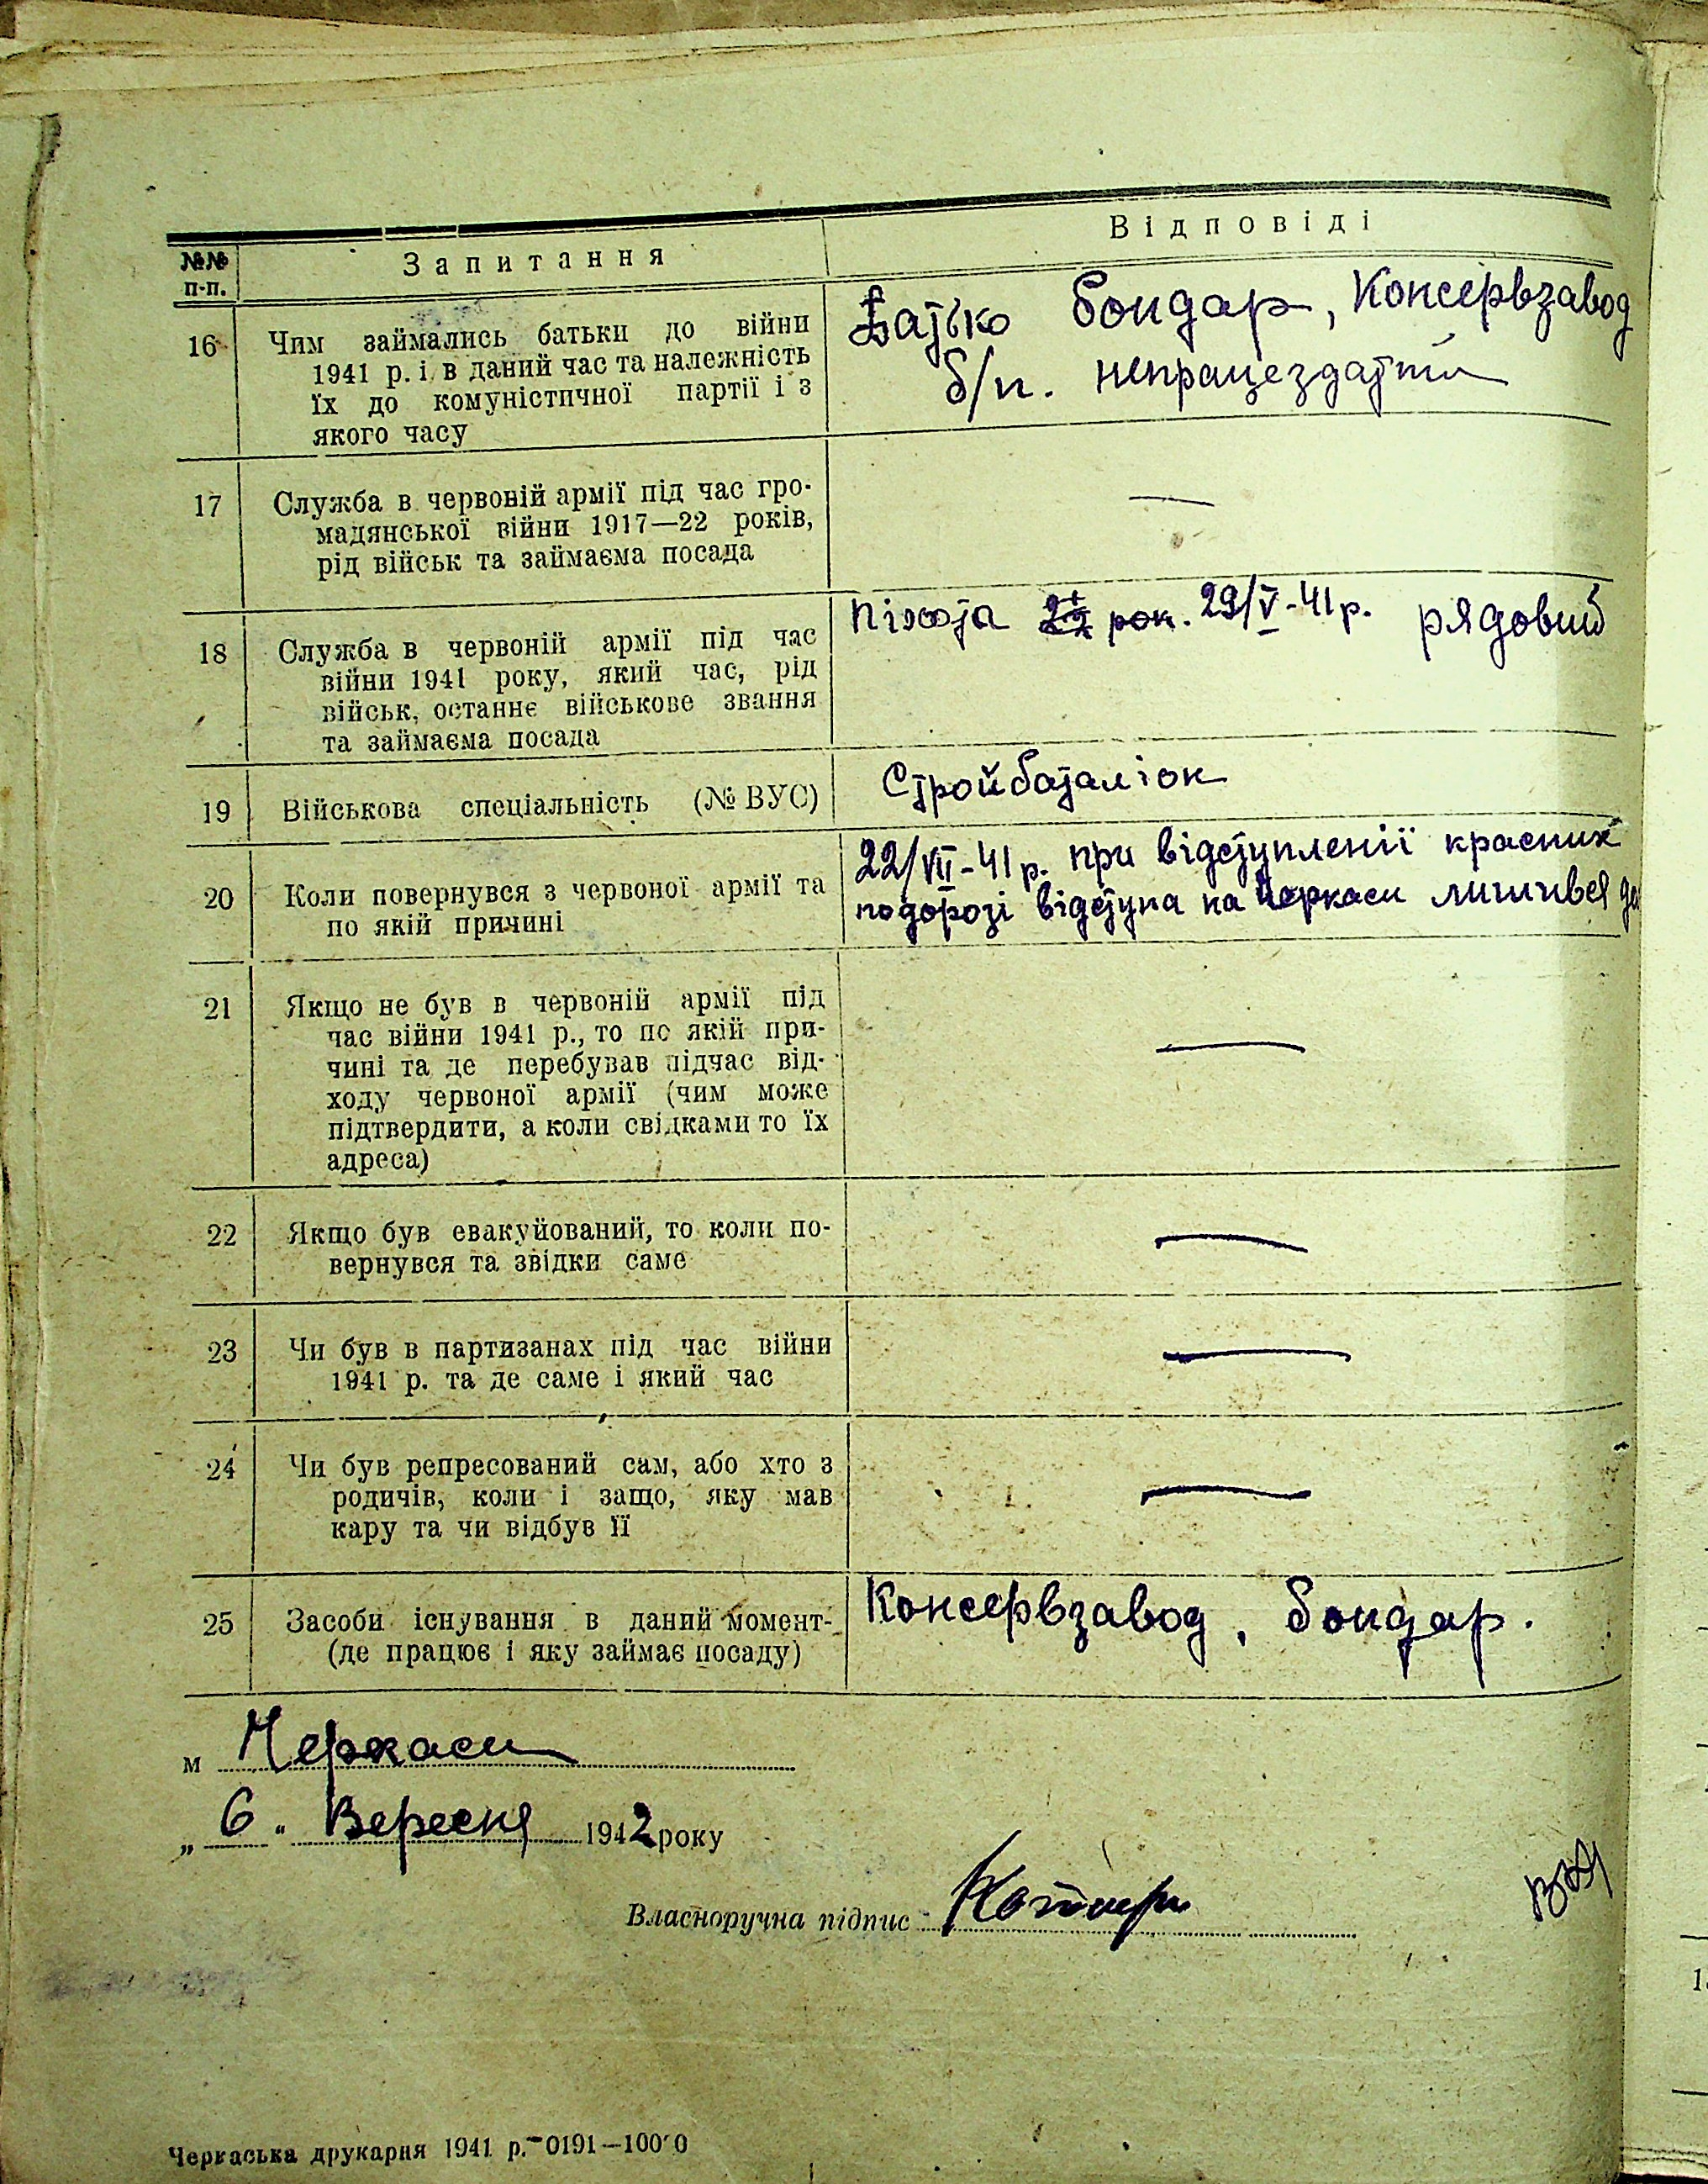 №№ п-п.
Запитання
Відповіді
16
Чим займались батьки до війни
1941 р. і в даний час та належність
їх до комуністичної партії і з
якого часу
Батько бондар, Консервзавод
б/п. непрацездатний
17
Служба в червоній армії під час гро-
мадянської війни 1917—22 років,
рід військ та займаєма посада
—
18
Служба в червоній армії під час
війни 1941 року, який час, рід
військ, останнє військове звання
та займаєма посада
піхота рок. 29/V-41 р. рядовий
19
Військова спеціальність (№ ВУС)
Стройбаталіон
20
Коли повернувся з червоної армії та
по якій причині
22/VII-41 р. при відступленії красних
по дорозі відступа на Черкаси лишився
21
Якщо не був в червоній армії під
час війни 1941 р., то по якій при-
чині та де перебував підчас від-
ходу червоної армії (чим може
підтвердити, а коли свідками то їх
адреса)
—
22
Якщо був евакуйований, то коли по-
вернувся та звідки саме
—
23
Чи був в партизанах під час війни
1941 р. та де саме і який час
—
24
Чи був репресований сам, або хто з
родичів, коли і защо, яку мав
кару та чи відбув її
—
25
Засоби існування в даний момент-
(де працює і яку займає посаду)
Консервзавод, бондар.
м Черкаси
„ 6 " Вересня 1942 року
Власноручна підпис
Черкаська друкарня 1941 р.—0191—100'0